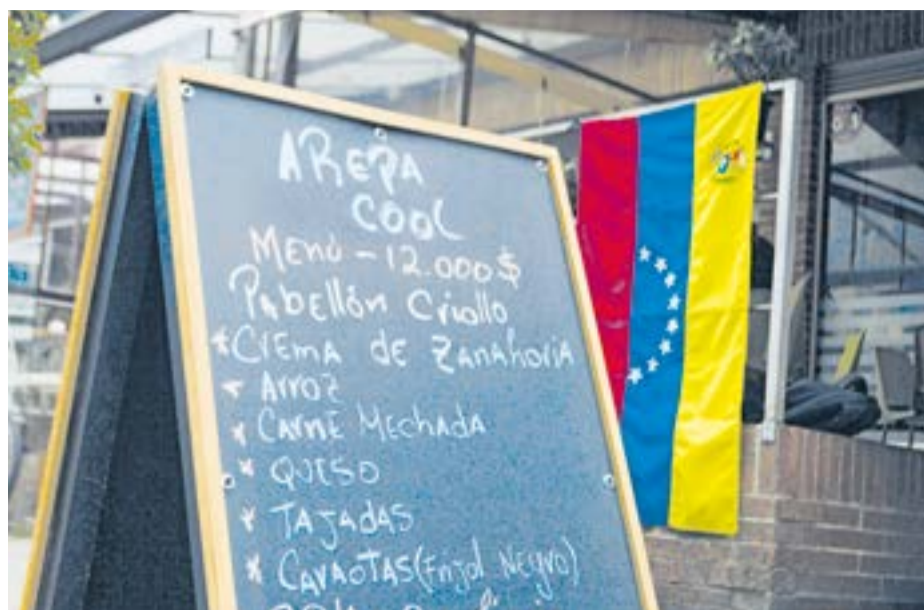 AREPA
COOL
MENÚ - 12.000$
PAbellón Criollo
*CREMA de ZANAhoRiA
* ARROZ
* CARNE MEchADA
* QUESO
* TAJADAS
* CARAOTAS (Frijol Negro)